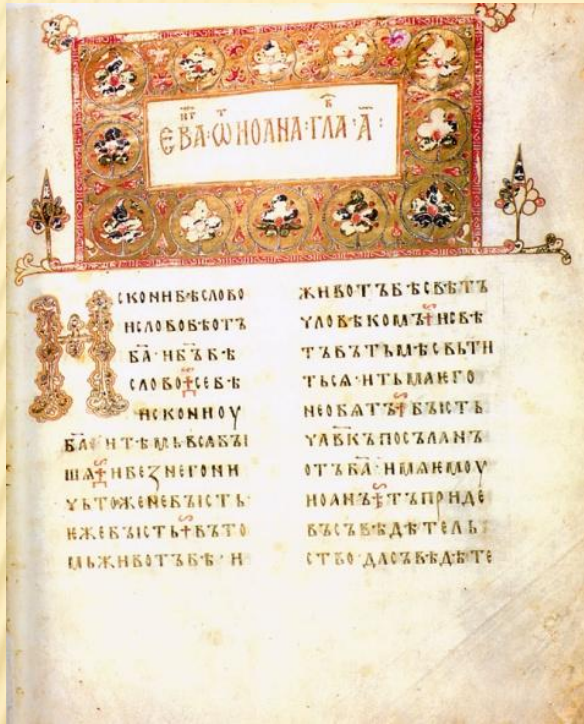 ЕВА · Ѡ ИОАНА · ГЛА · А҃ :
ИСКОНИ БѢ СЛОВО
И СЛОВО БѢ ОТЪ
БА҃ · И БЪ҃ БѢ
СЛОВО СЕ БѢ
ИСКОНИ ОУ
БА҃ · И ТѢМЬ ВСѦ БꙐ
ШѦ И БЕЗ НЕГО НИ
ЧЬТОЖЕ НЕ БꙐСТЬ ·
ЕЖЕ БꙐСТЬ ВЪ ТО
МЬ ЖИВОТЪ БѢ · И
ЖИВОТЪ БѢ СВѢТЪ
ЧЛОВѢКОМЪ И СВѢ
ТЪ ВЪ ТЬМѢ СВЬТИ
ТЬСѦ · И ТЬМА ѤГО
НЕ ОБѦТЪ БꙐСТЬ
ЧЛ҃ВКЪ ПОСЪЛАНЪ
ОТЪ БА҃ · ИМѦ ѤМОУ
ИОАНЪ ТЪ ПРИДЕ
ВЪ СЪВѢДѢТЕЛЬ
СТВО · ДА СЪВѢДѢТЕ